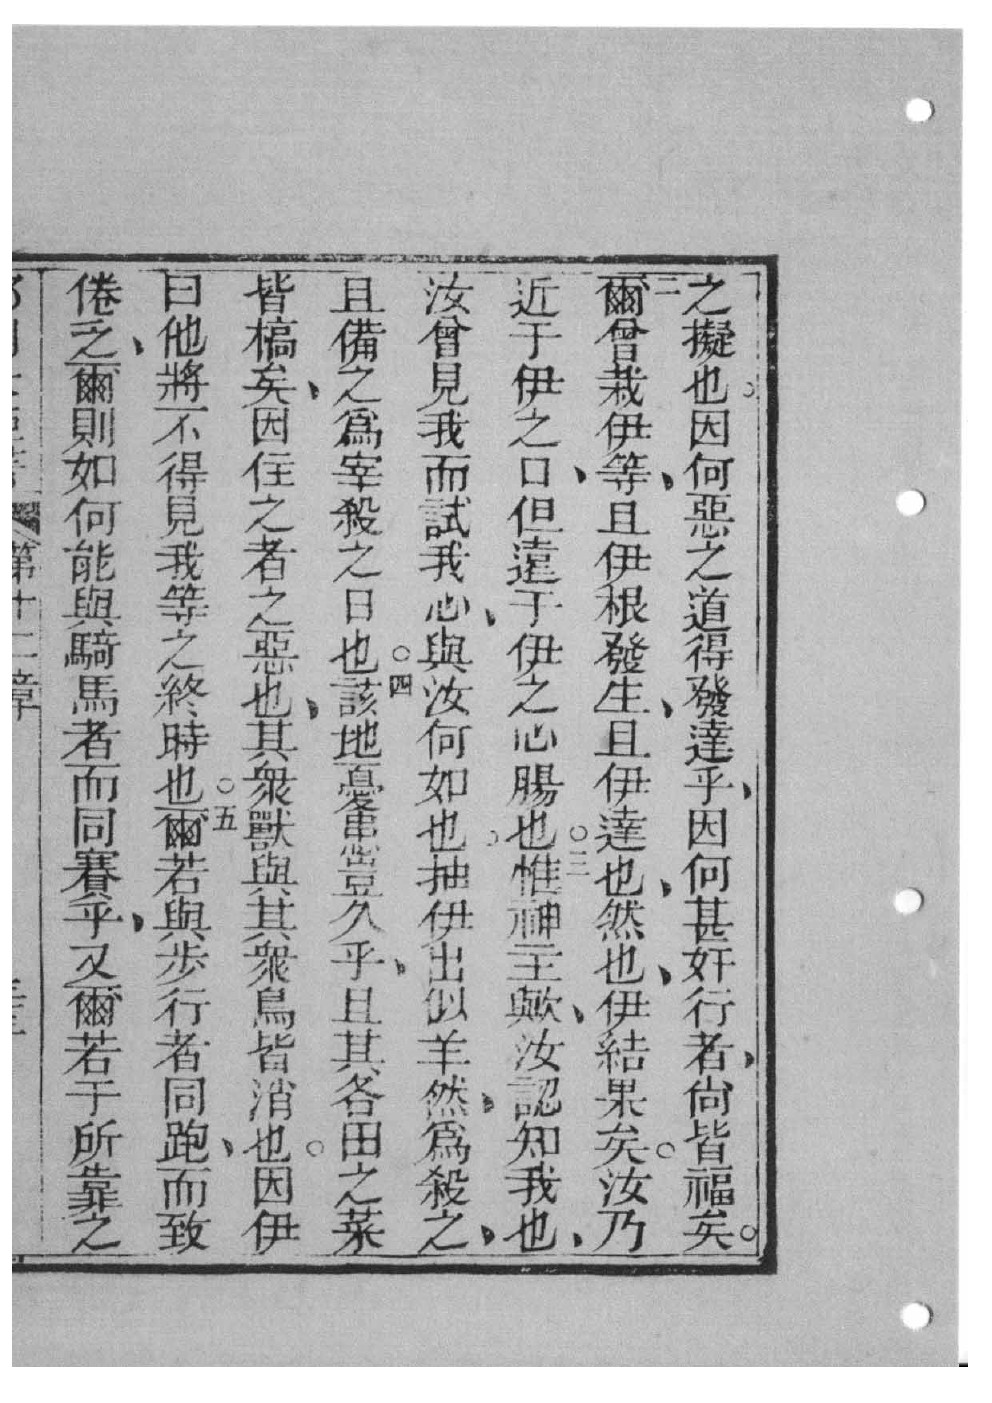 之擬也。因何惡之道得發達乎、因何甚奸行者、尙皆福矣。
二爾曾栽伊等、且伊根發生、且伊達也、然也、伊結果矣。汝乃
近于伊之口、但遠于伊之心腸也。三惟神主歟、汝認知我也、
汝曾見我而試我心、與汝何如也。抽伊出似羊然、爲殺之、
且備之爲宰殺之日也。四該地憂患豈久乎、且其各田之菜
皆槁矣、因住之者之惡也、其衆獸與其衆鳥皆消也。因伊
曰他將不得見我等之終時也。五爾若與步行者同跑、而致
倦乏、爾則如何能與騎馬者而同賽乎、又爾若于所靠之
第十二章